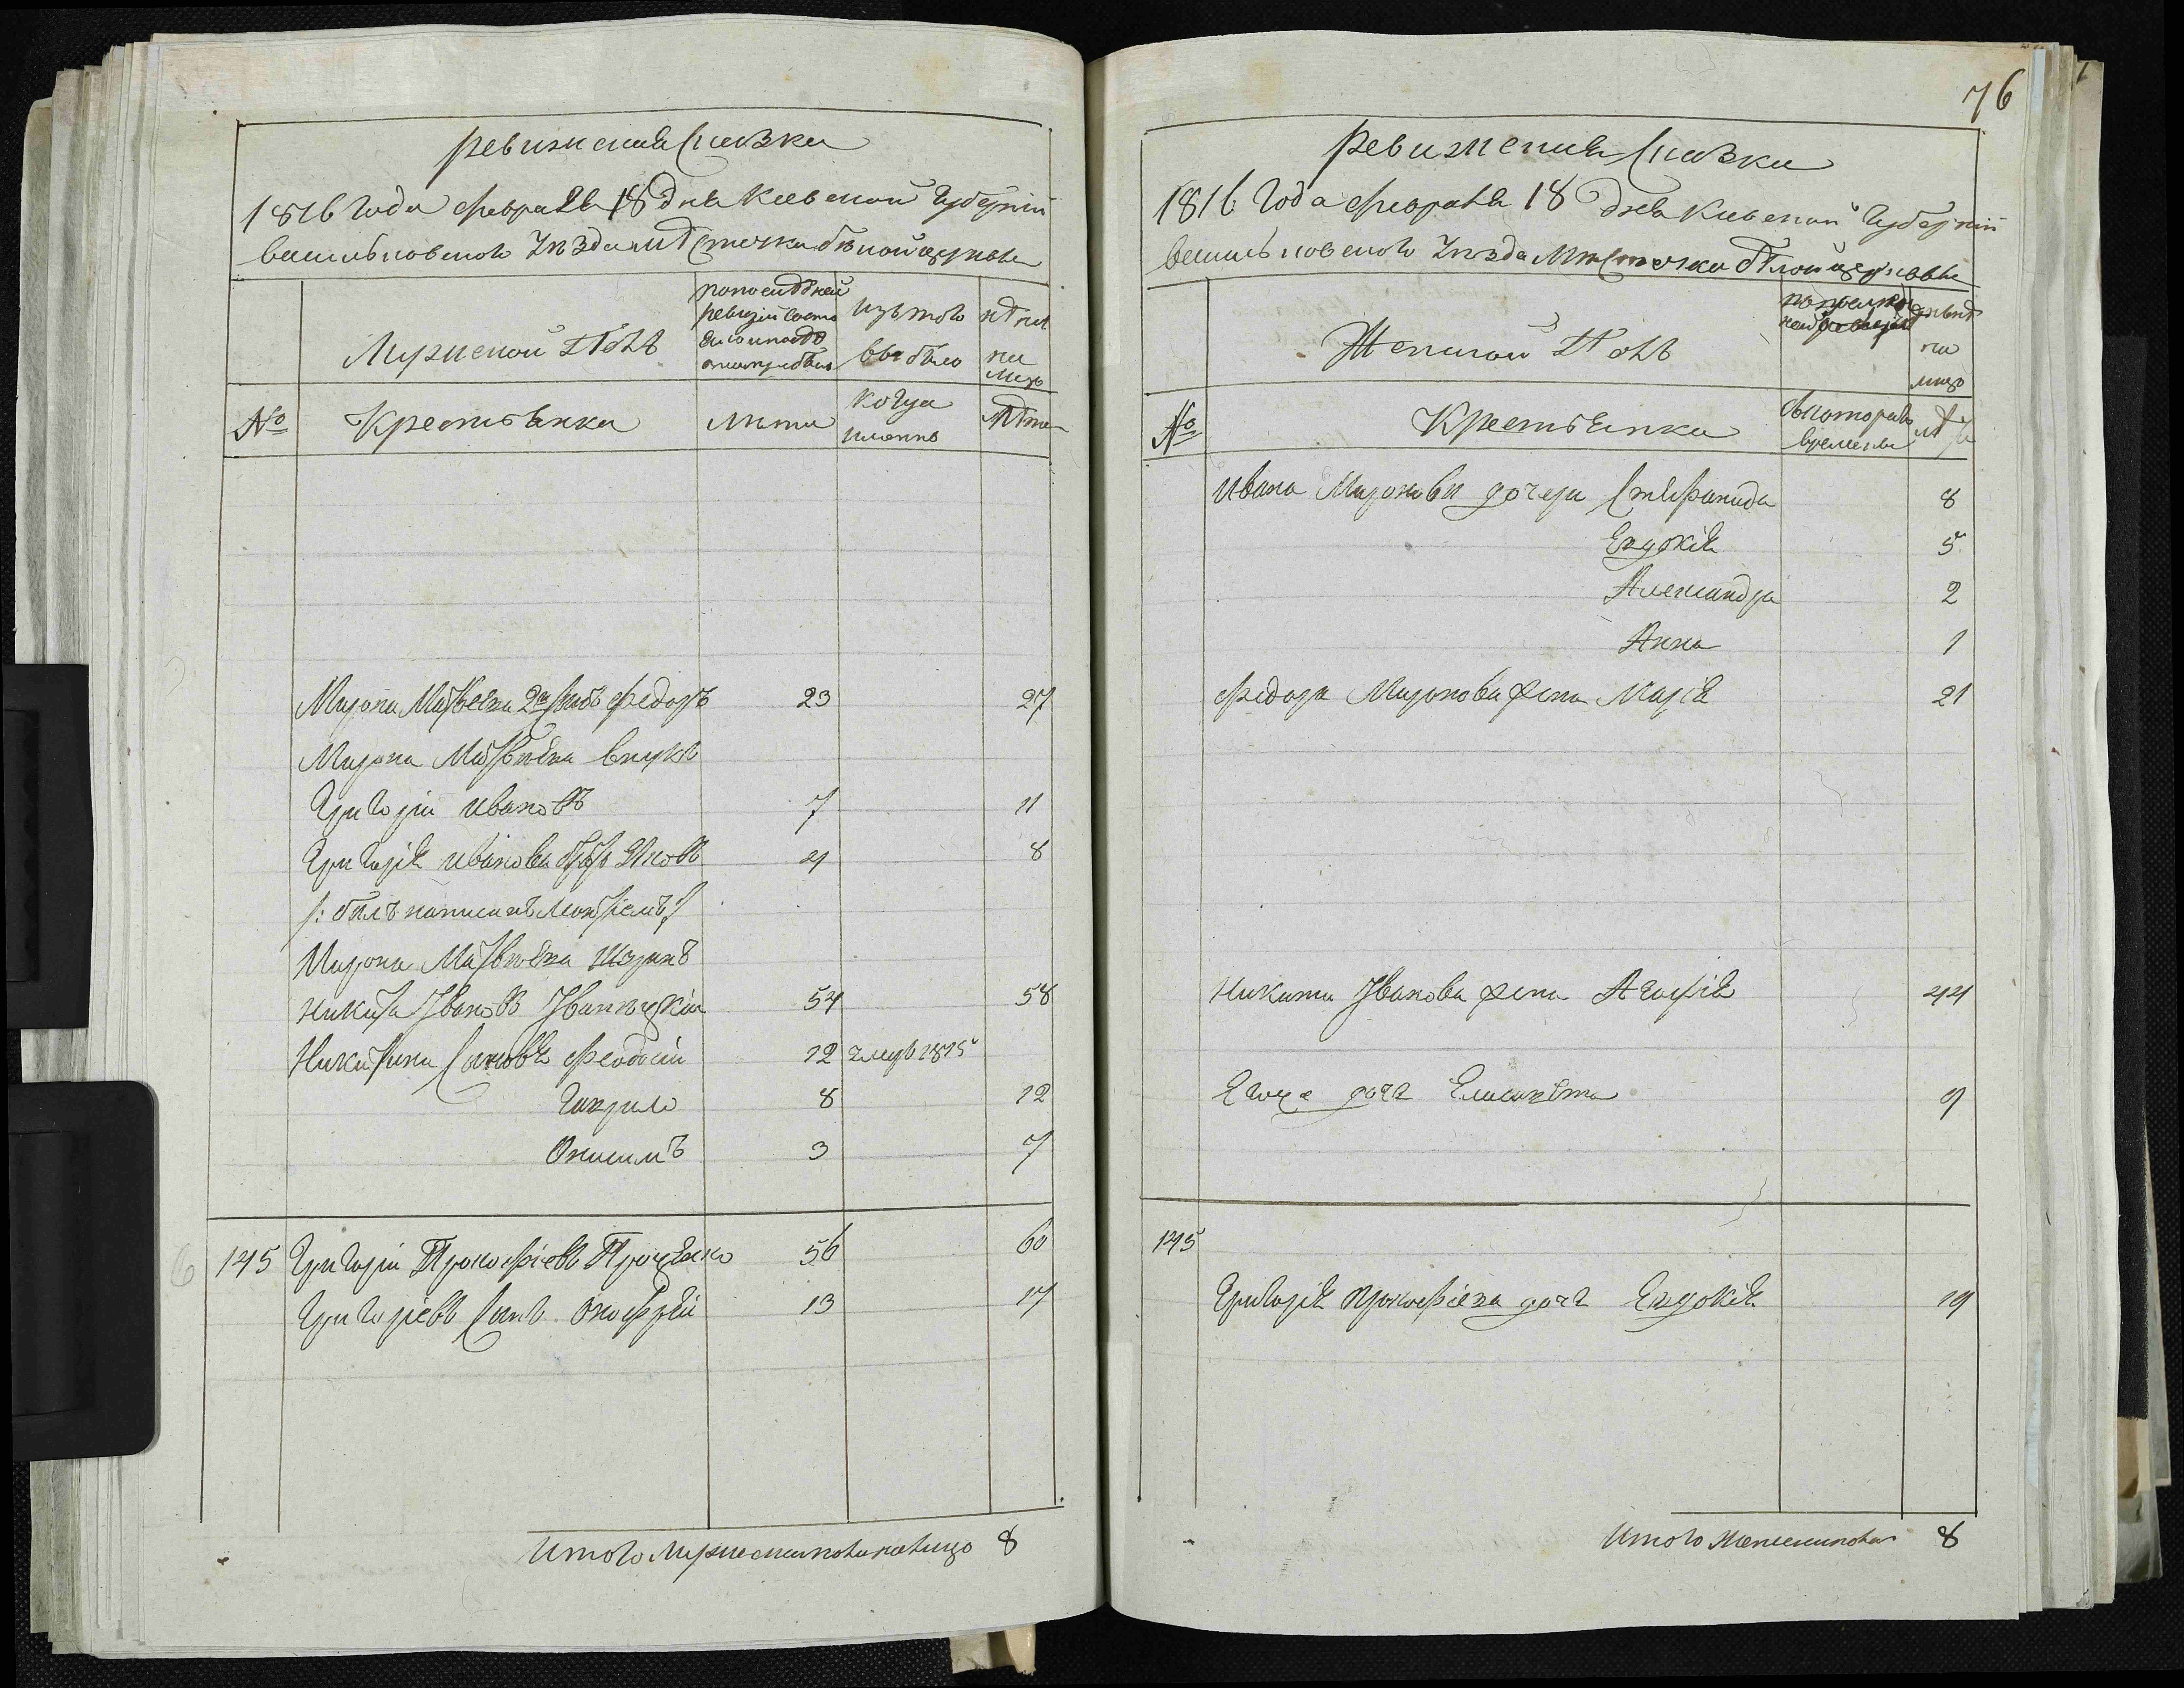 Ревижская Сказка
1816 года февраля 18 дня Киевской Губернiи
васильковского Уезда мѣстечка бѣлойцеркви
Мужеской Полъ
по последней ревизiи состояло и после оной прибыло
изъ того выбыло
нынѣ на лицо
№
Крестьянка
лѣта
когда именно
лѣта
Мирона Матвеева 2й сынъ Федоръ 23 27
Мирона Матвѣева внукъ
Григорiй Ивановъ 7 11
Григорiя Иванова братъ Яковъ 4 8
/: былъ написанъ :/
Мирона Матвѣева Шуринъ
Никита Ивановъ 54 58
Никитины Сыновья Феодосiй 12 умеръ 1815
Гаврило 8 12
Онисимъ 3 7
145 Григорiй Прокофiевъ Проценко 56 60
Григорiевъ Сынъ Онофрiй 13 17
Итого Мужеска пола налицо 8
76
Ревижская Сказка
1816 Года февраля 18 дня Киевской Губернiи
васильковского Уезда Мѣстечка Бѣлойцеркви
Женской Полъ
№
Крестьянка
с котораго времени
лѣта
Ивана Миронова дочери Стефанида 8
Евдокiя 5
Александра 2
Анна 1
Федора Миронова жена Марiя 21
Никиты Иванова жена Агафiя 44
Егоже дочь Елисавета 9
145
Григорiя Прокофiева дочь Евдокiя 19
Итого Женска пола 8